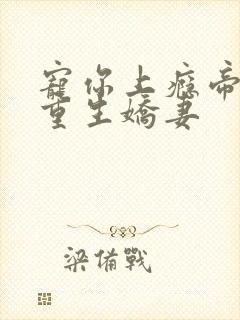 寵你上癮帝
重生嬌妻
梁備戰